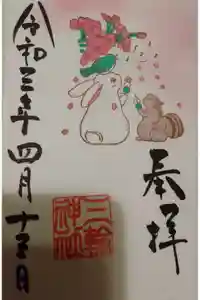 奉拝
三輪
神社
令和三年四月十五日